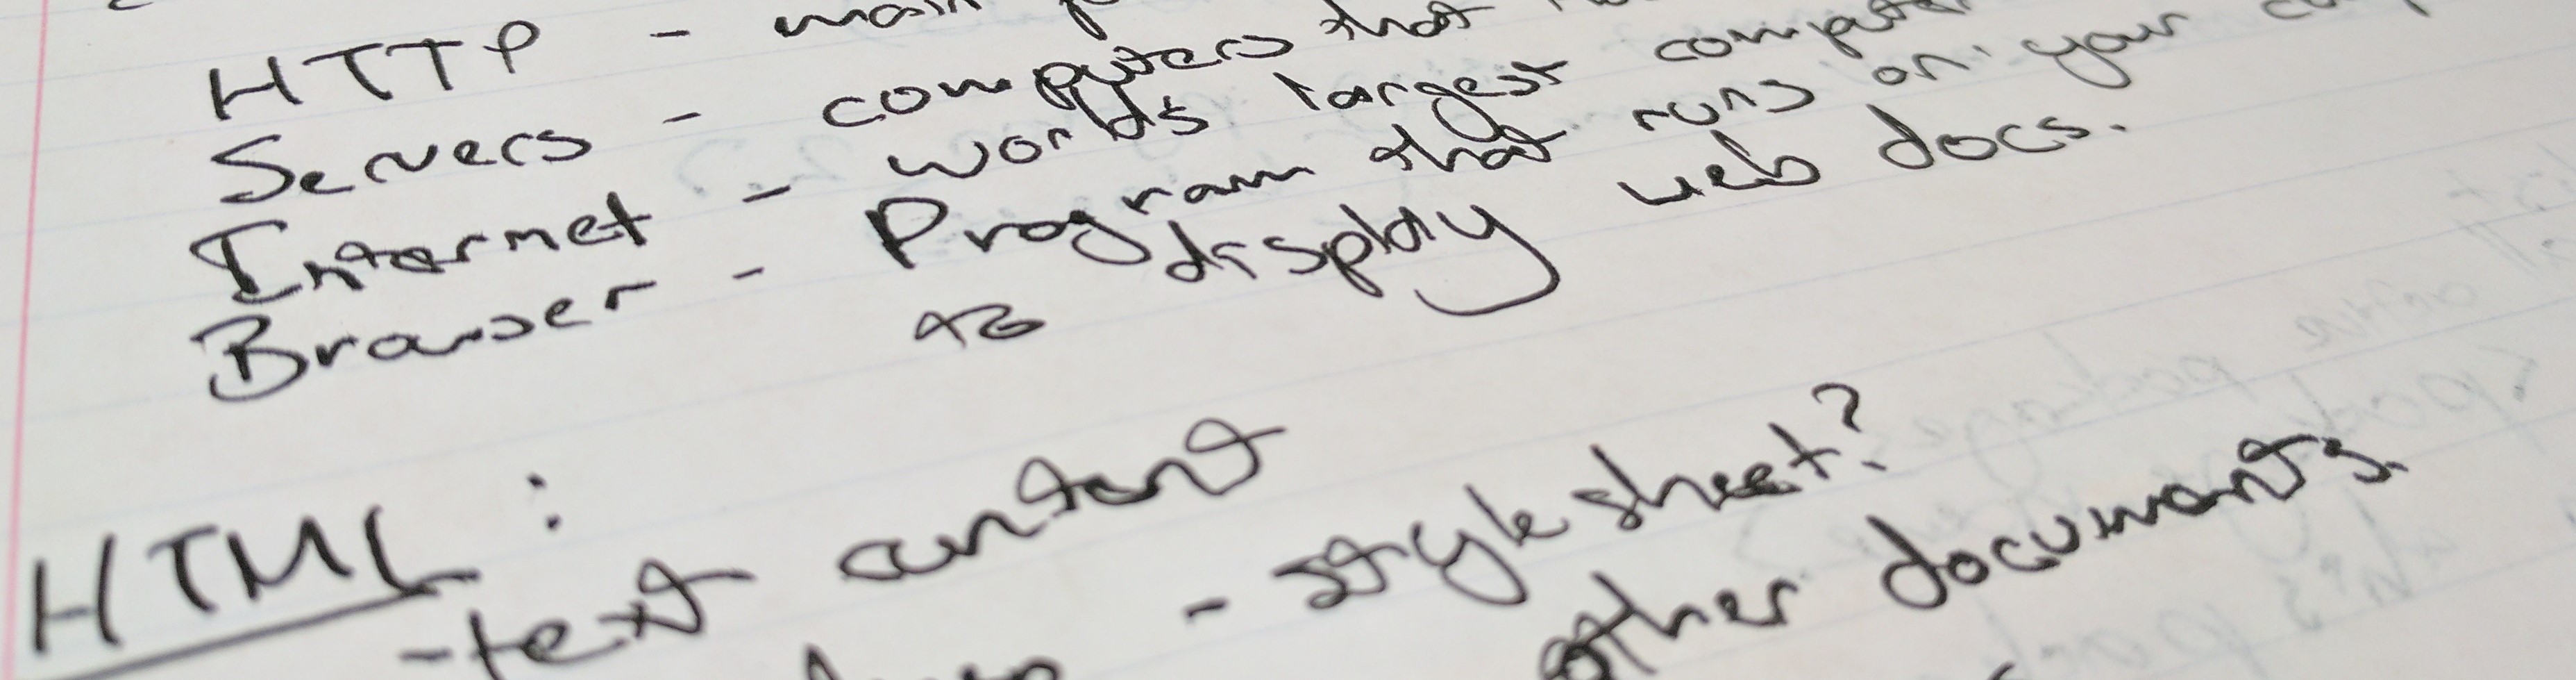 HTTP - main
Servers - computers that
Internet - worlds largest computer
Browser - Program that runs on your
to display web docs.
HTML:
-text content
- style sheet?
other documents.